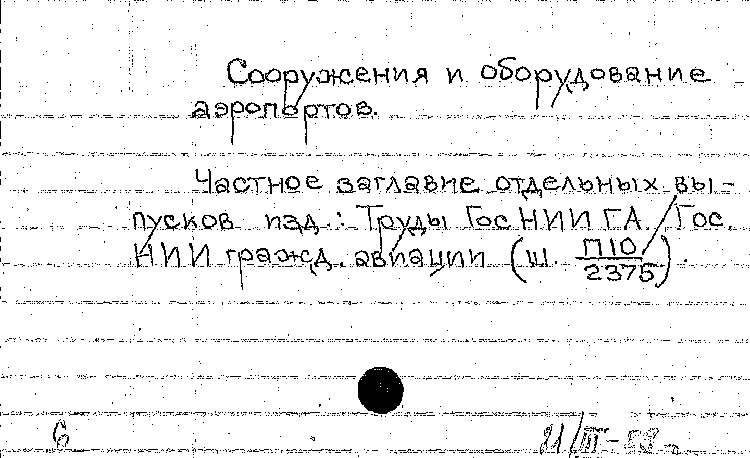 Сооружения и оборудование
аэропортов.
Частное заглавие отдельных вы-
пусков изд.: Труды ГосНИИ ГА. Гос.
НИИ гражд. авиации (ш. П10/2375).
6